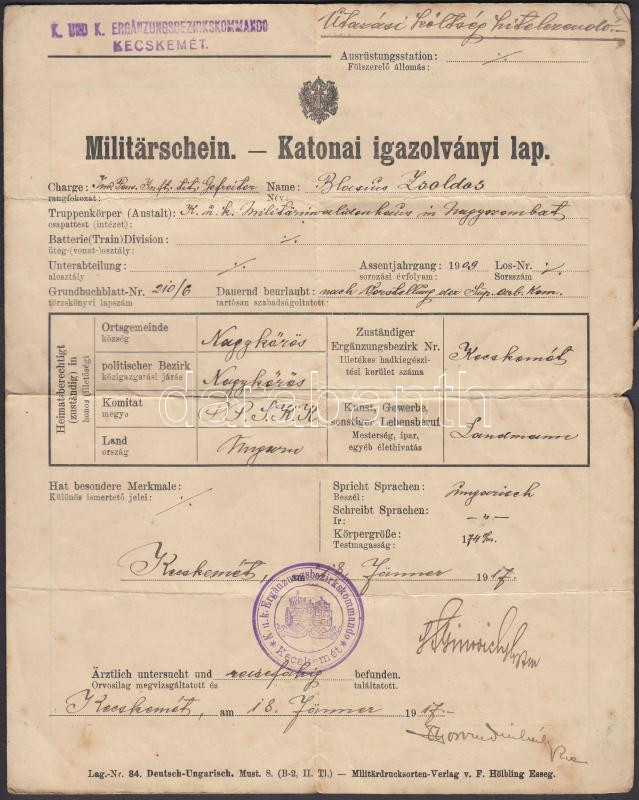 K. UND K. ERGÄNZUNGSBEZIRKSKOMMANDO
KECSKEMÉT.
Utazási költség hitelezendő
Ausrüstungsstation: ./.
Fölszerelő állomás:
Militärschein. — Katonai igazolványi lap.
Charge: Inft. tit. Gefreiter Name: Blasius Zsoldos
rangfokozat: Név:
Truppenkörper (Anstalt): K. u. k. Militärinvalidenhaus in Nagyszombat
csapattest (intézet):
Batterie(Train)Division: ./.
üteg-(vonat-)osztály:
Unterabteilung: ./. Assentjahrgang: 1909 Los-Nr. ./.
alosztály sorozási évfolyam: Sorsszám
Grundbuchblatt-Nr. 210/6 Dauernd beurlaubt: nach Vorstellung der Sup. arb. Kom.
törzskönyvi lapszám tartósan szabadságoltatott:
Heimatsberechtigt
(zuständig) in
honos (illetőségi)
Ortsgemeinde
község
Nagykőrös
politischer Bezirk
közigazgatási járás
Nagykőrös
Komitat
megye
P. P. S. K. K.
Land
ország
Ungarn
Zuständiger
Ergänzungsbezirk Nr.
Illetékes hadkiegészí-
tési kerület száma
Kecskemét
Kunst, Gewerbe,
sonstiger Lebensberuf
Mesterség, ipar,
egyéb élethivatás
Landmann
Hat besondere Merkmale:
Különös ismertető jelei: ./.
Spricht Sprachen: ungarisch
Beszél:
Schreibt Sprachen: -"-
Ir:
Körpergröße: 174 cm.
Testmagasság:
Kecskemét, am 18. Jänner 1917.
* K. u. k. Ergänzungsbezirkskommando * Kecskemét
Ärztlich untersucht und reisefähig befunden.
Orvosilag megvizsgáltatott és találtatott.
Kecskemét, am 18. Jänner 1917.
Lag.-Nr. 84. Deutsch-Ungarisch. Must. 8. (B-2, II. Tl.) — Militärdrucksorten-Verlag v. F. Hölbling Esseg.
darabanth